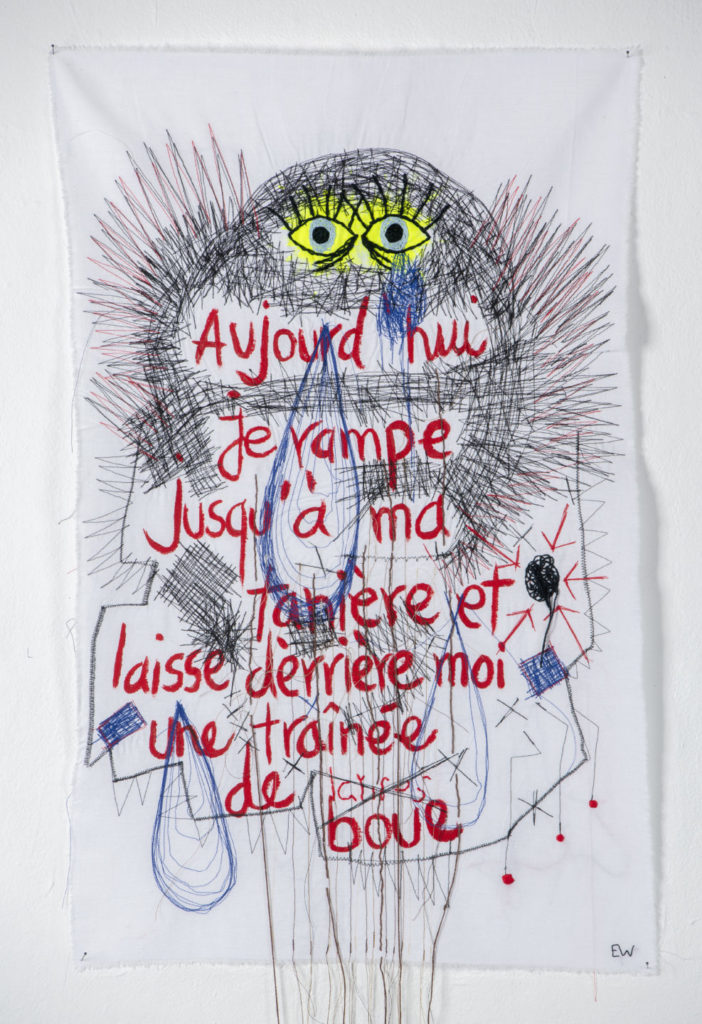 Aujourd hui
je rampe
jusqu'à ma
tanière et
laisse derrière moi
une traînée
de
boue
EW